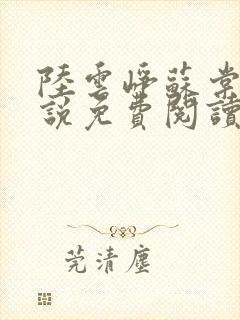 陸雲崢蘇棠
說免費閱讀
莞清塵